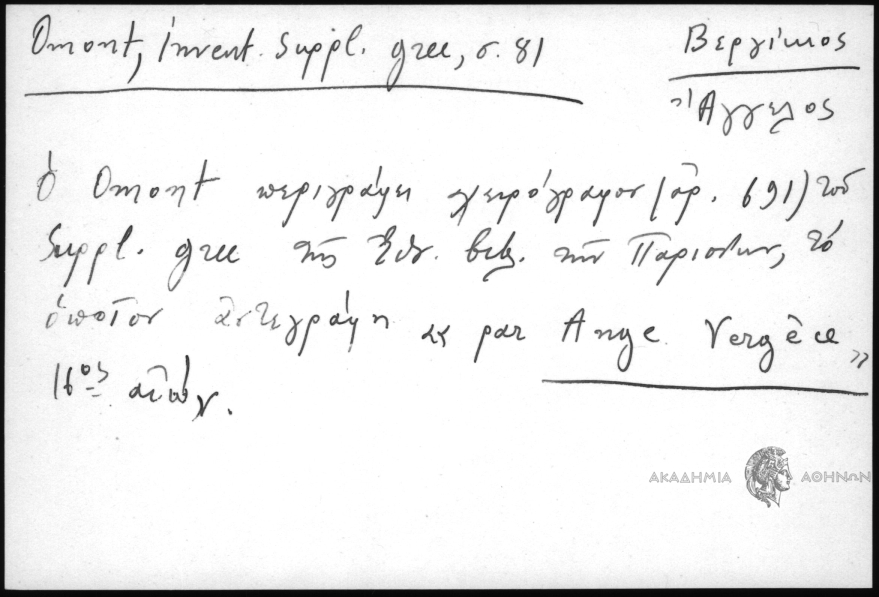 Omont, Invent. Suppl. grec, σ. 81
Βεργίκιος
Ἄγγελος
ὁ Omont περιγράφει χειρόγραφον (ἀρ. 691) τοῦ
Suppl. grec τῆς Ἐθν. βιβλ. τῶν Παρισίων, τὸ
ὁποῖον ἀντεγράφη «par Ange Vergèce»
16ος αἰών.
ΑΚΑΔΗΜΙΑ ΑΘΗΝΩΝ